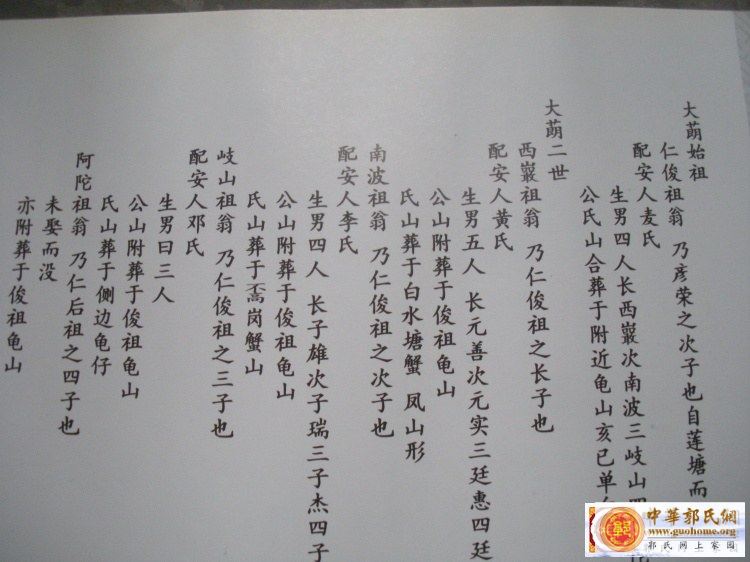 大萌始祖
仁俊祖翁 乃彦荣之次子也自莲塘而
配安人麦氏
生男四人长西巖次南波三岐山四
公氏山合葬于附近龟山亥巳单
大萌二世
西巖祖翁 乃仁俊祖之长子也
配安人黄氏
生男五人 长元善次元实三廷惠四廷
公山附葬于俊祖龟山
氏山葬于白水塘蟹 凤山形
南波祖翁 乃仁俊祖之次子也
配安人李氏
生男四人 长子雄次子瑞三子杰四子
公山附葬于俊祖龟山
氏山葬于蒿岗蟹山
岐山祖翁 乃仁俊祖之三子也
配安人邓氏
生男曰三人
公山附葬于俊祖龟山
氏山葬于侧边龟仔
阿陀祖翁 乃仁后祖之四子也
未娶而没
亦附葬于俊祖龟山
中華郭氏網
www.guohome.org
郭氏网上家园